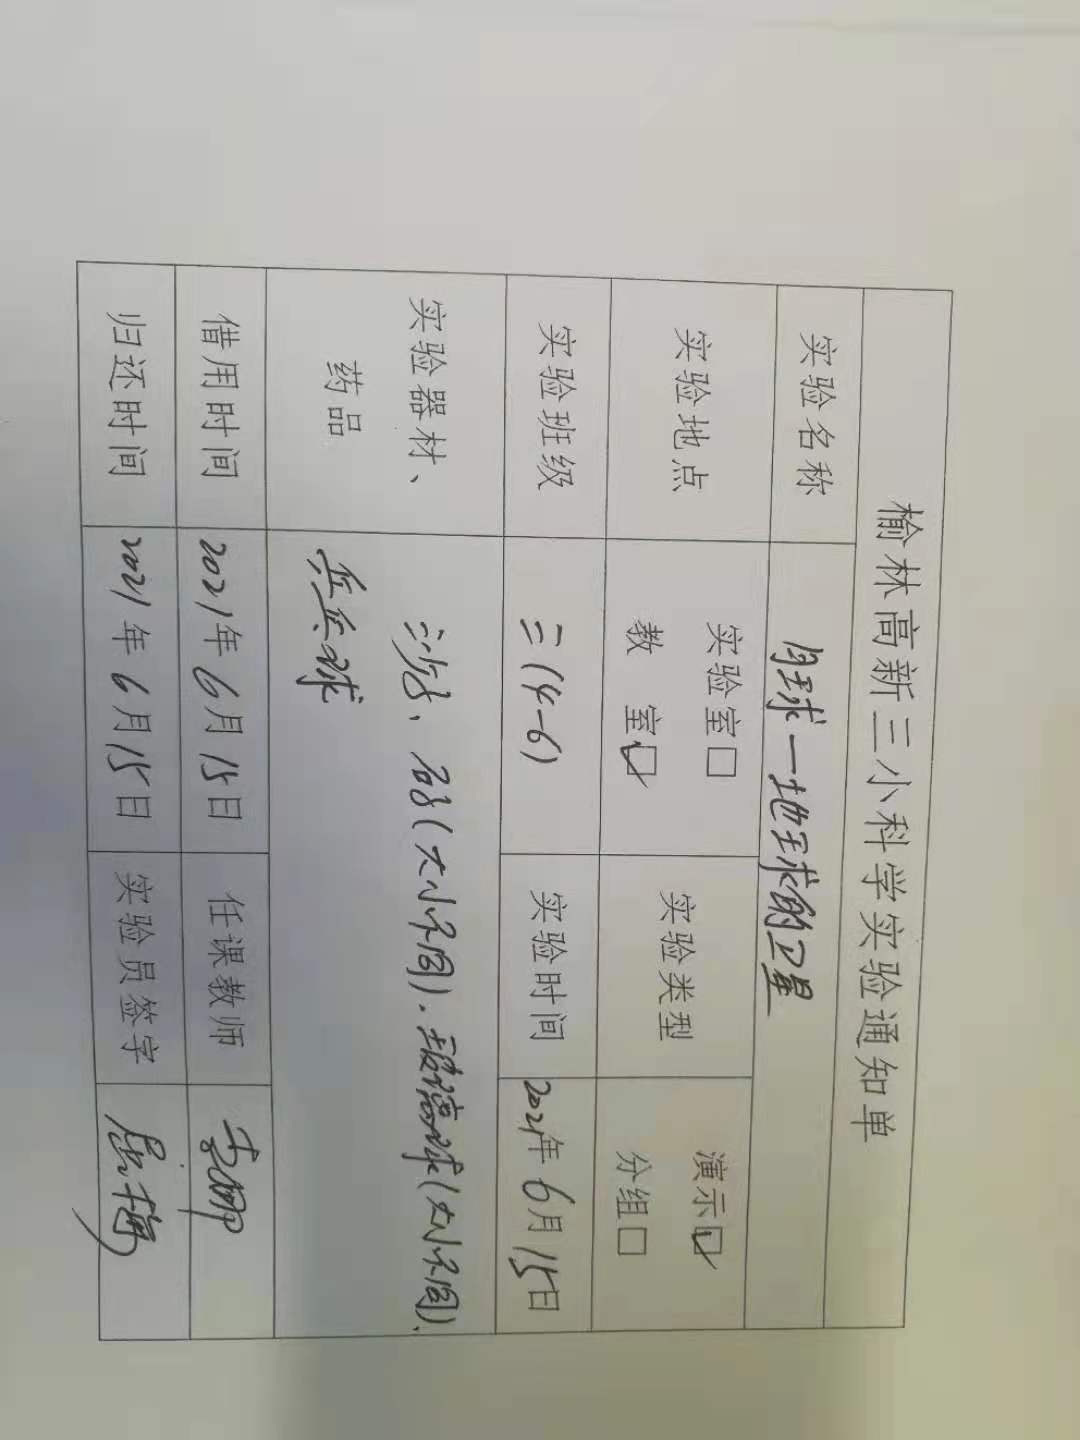 榆林高新三小科学实验通知单
实验名称 月球—地球的卫星
实验地点 实验室□ 教 室☑ 实验类型 演示☑ 分组□
实验班级 三(4-6) 实验时间 2021年6月15日
实验器材、药品 沙子、石子(大小不同)、玻璃球(大小不同)、
乒乓球
借用时间 2021年6月15日 任课教师 李娜
归还时间 2021年6月15日 实验员签字